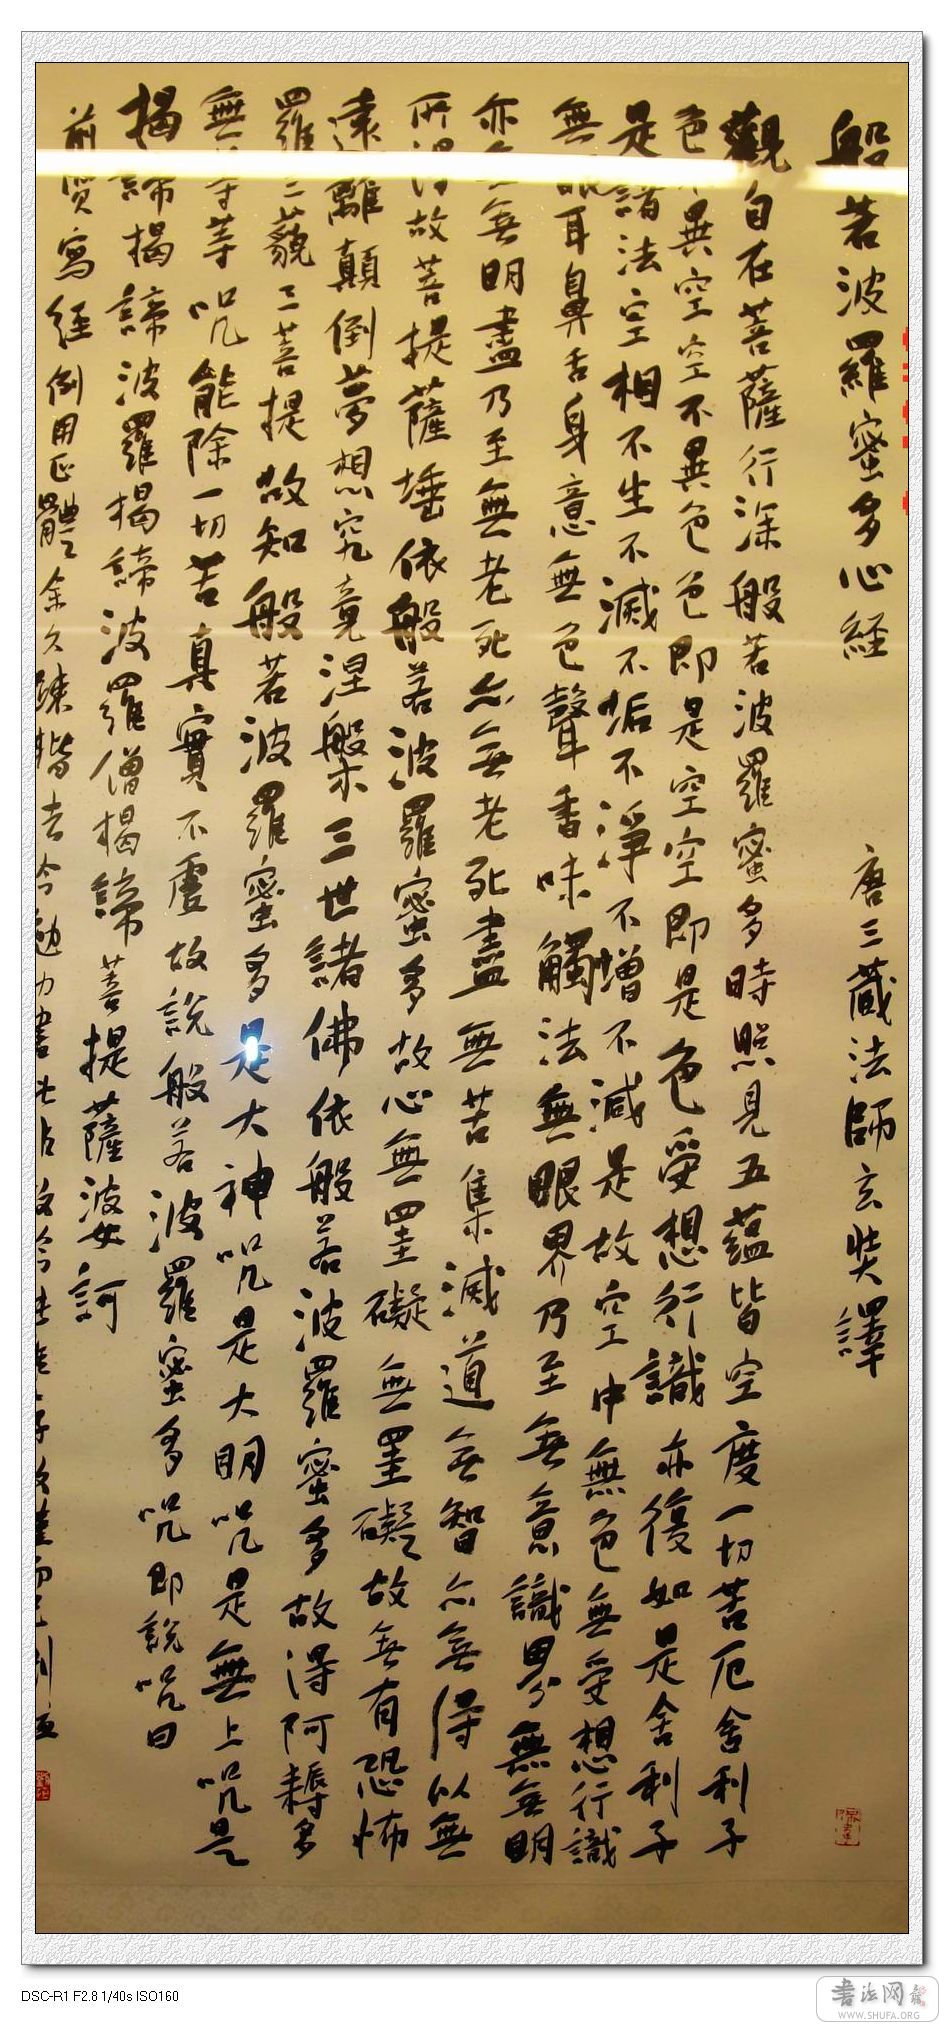 般若波羅蜜多心経 唐三蔵法師玄奘譯
觀自在菩薩行深般若波羅蜜多時照見五蘊皆空度一切苦厄舍利子
色不異空空不異色色即是空空即是色受想行識亦復如是舍利子
是諸法空相不生不滅不垢不淨不增不減是故空中無色無受想行識
無眼耳鼻舌身意無色聲香味觸法無眼界乃至無意識界無無明
亦無無明盡乃至無老死亦無老死盡無苦集滅道無智亦無得以無
所得故菩提薩埵依般若波羅蜜多故心無罣礙無罣礙故無有恐怖
遠離顛倒夢想究竟涅槃三世諸佛依般若波羅蜜多故得阿耨多
羅三藐三菩提故知般若波羅蜜多是大神咒是大明咒是無上咒是
無等等咒能除一切苦真實不虛故說般若波羅蜜多咒即說咒曰
揭諦揭諦波羅揭諦波羅僧揭諦菩提薩婆訶
前賢寫經例用正體余久疎楷法今勉力書
DSC-R1 F2.8 1/40s ISO160
書法网
WWW.SHUFA.ORG